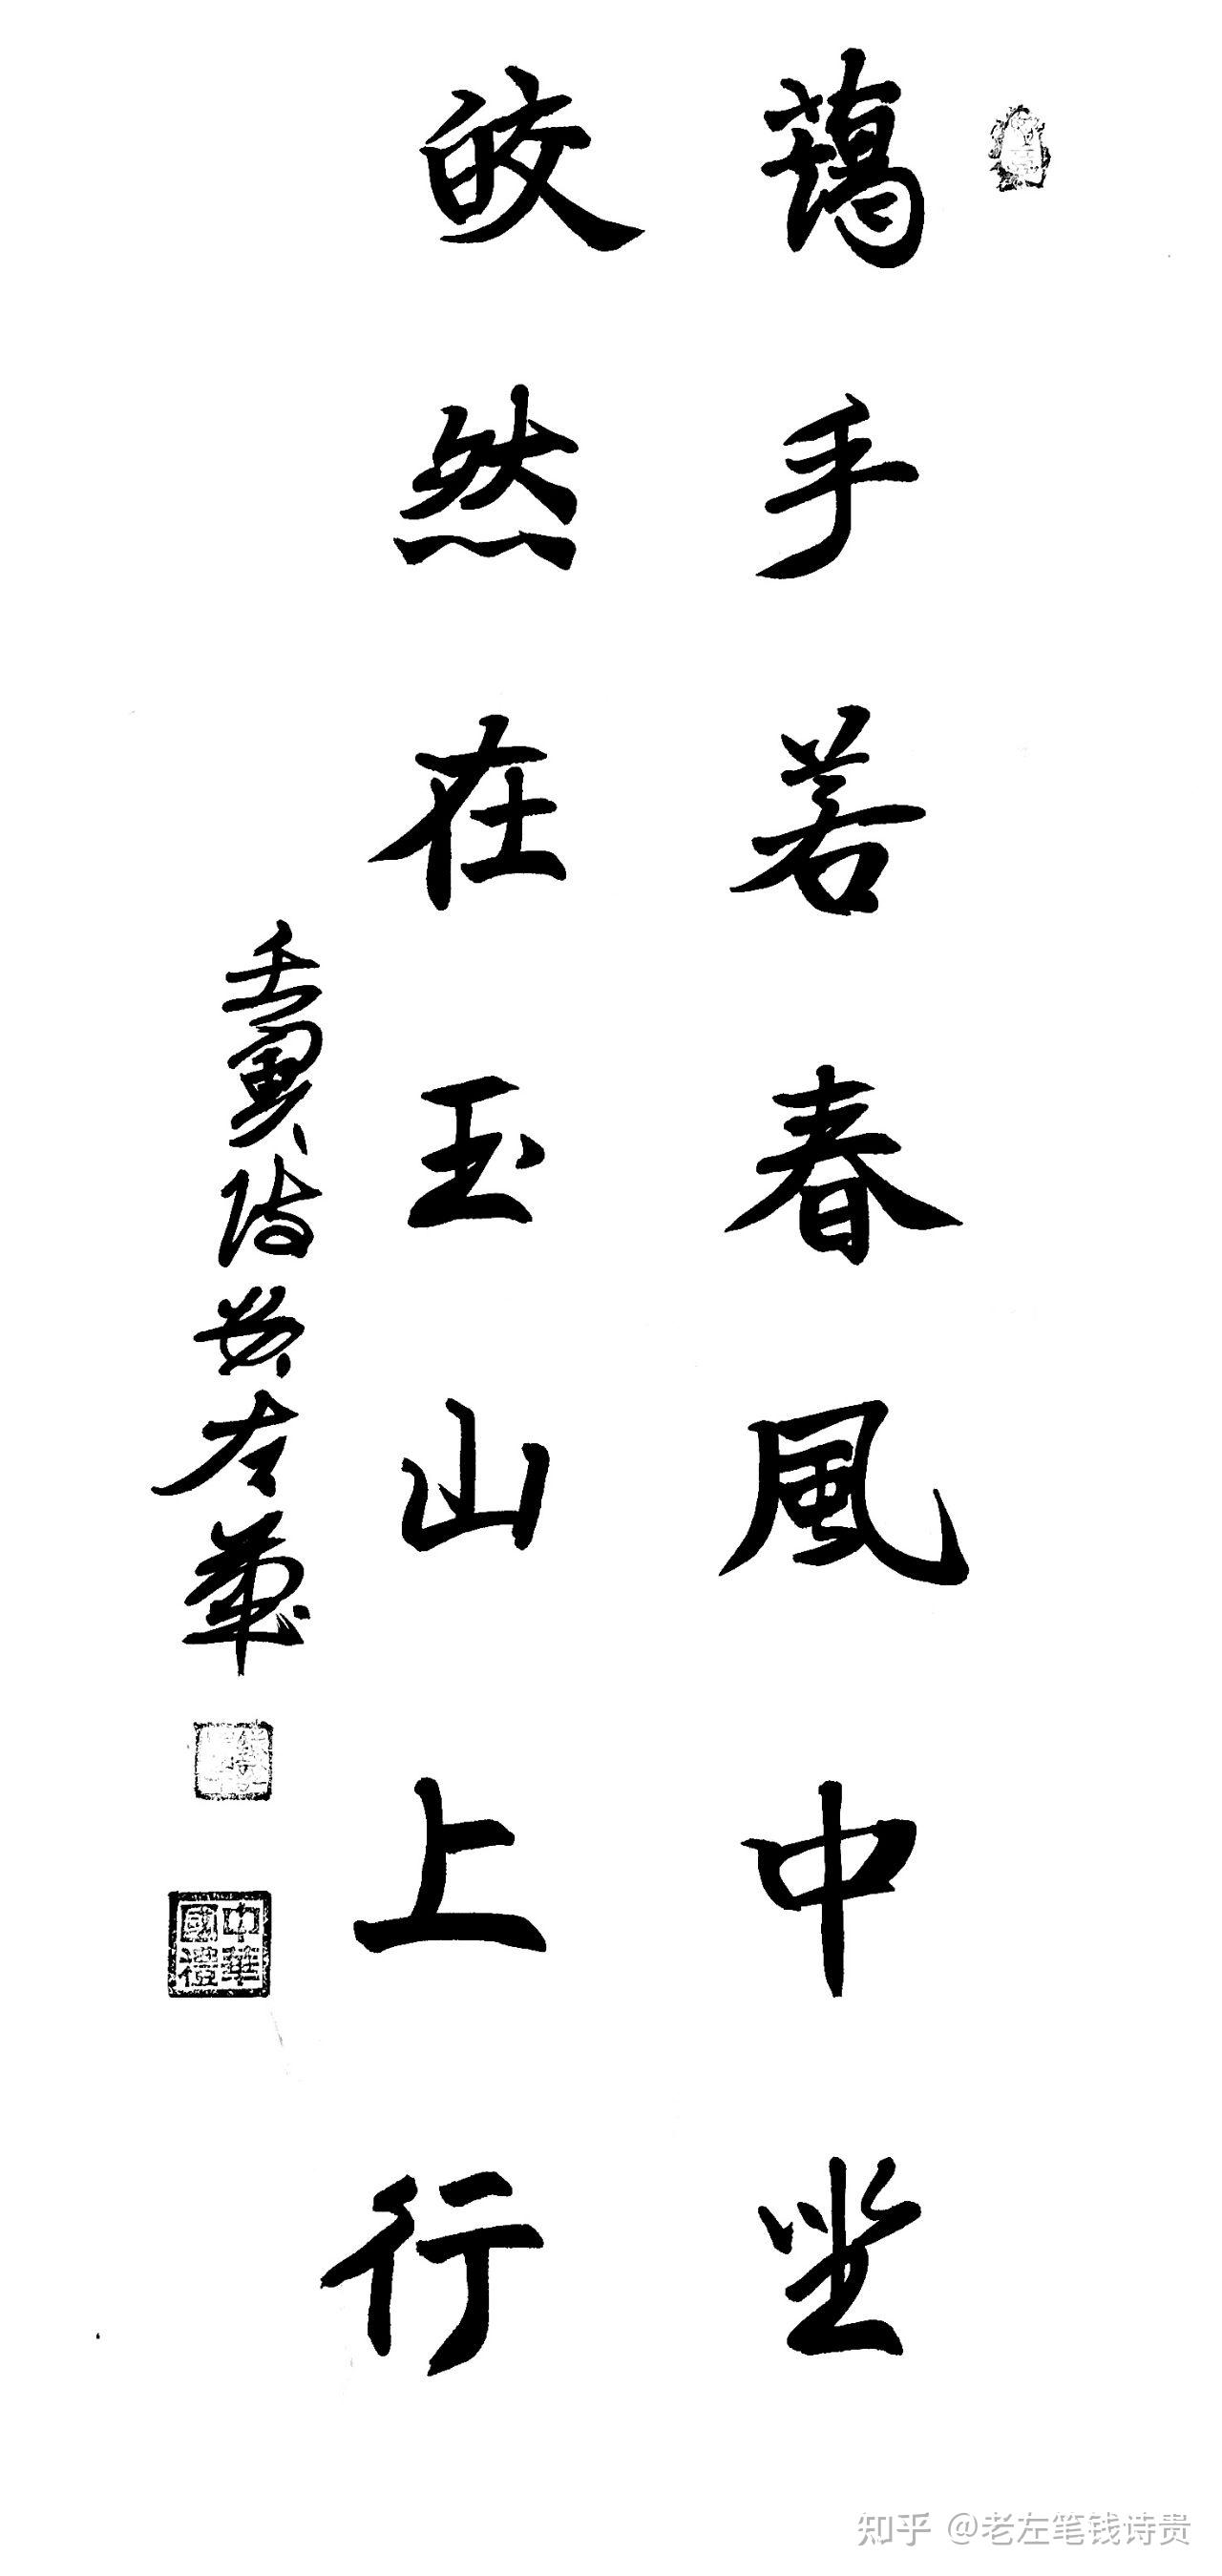 藹乎若春風中坐
皎然在玉山上行
壬寅
中華國禮
知乎 @老左笔钱诗贵